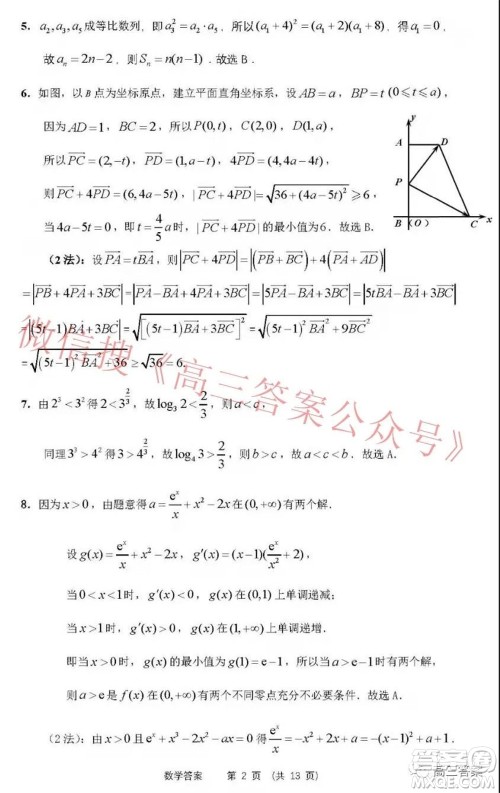 5. a₂,a₃,a₅成等比数列，即a₃²=a₂·a₅，所以(a₁+4)²=(a₁+2)(a₁+8)，得a₁=0，
故aₙ=2n−2，则Sₙ=n(n−1)．故选B．
6. 如图，以B点为坐标原点，建立平面直角坐标系，设AB=a，BP=t(0≤t≤a)，
因为AD=1，BC=2，所以P(0,t)，C(2,0)，D(1,a)，
所以\overrightarrow{PC}=(2,−t)，\overrightarrow{PD}=(1,a−t)，4\overrightarrow{PD}=(4,4a−4t)，
则\overrightarrow{PC}+4\overrightarrow{PD}=(6,4a−5t)，|\overrightarrow{PC}+4\overrightarrow{PD}|=\sqrt{36+(4a−5t)²}≥6，
当4a−5t=0，即t=\frac{4}{5}a时，|\overrightarrow{PC}+4\overrightarrow{PD}|的最小值为6．故选A．
y
A
D
P
B
(O)
C
x
（2法）：设\overrightarrow{PA}=t\overrightarrow{BA}，则|\overrightarrow{PC}+4\overrightarrow{PD}|=|(\overrightarrow{PB}+\overrightarrow{BC})+4(\overrightarrow{PA}+\overrightarrow{AD})|
=|\overrightarrow{PB}+4\overrightarrow{PA}+3\overrightarrow{BC}|=|\overrightarrow{PA}−\overrightarrow{BA}+4\overrightarrow{PA}+3\overrightarrow{BC}|=|5\overrightarrow{PA}−\overrightarrow{BA}+3\overrightarrow{BC}|=|5t\overrightarrow{BA}−\overrightarrow{BA}+3\overrightarrow{BC}|
=|(5t−1)\overrightarrow{BA}+3\overrightarrow{BC}|=\sqrt{[(5t−1)\overrightarrow{BA}+3\overrightarrow{BC}]²}=\sqrt{(5t−1)²\overrightarrow{BA}²+9\overrightarrow{BC}²}
=\sqrt{(5t−1)²\overrightarrow{BA}²+36}≥\sqrt{36}=6．
7. 由2³<3²得2<3^{\frac{2}{3}}，故log₃2<\frac{2}{3}，则a<c．
同理3³>4²得3>4^{\frac{2}{3}}，故log₄3>\frac{2}{3}，则b>c，故a<c<b．故选A．
8. 因为x>0，由题意得a=\frac{eˣ}{x}+x²−2x在(0,+∞)有两个解．
设g(x)=\frac{eˣ}{x}+x²−2x，g′(x)=(x−1)(\frac{eˣ}{x²}+2)，
当0<x<1时，g′(x)<0，g(x)在(0,1)上单调递减；
当x>1时，g′(x)>0，g(x)在(1,+∞)上单调递增．
即当x>0时，g(x)的最小值为g(1)=e−1，所以当a>e−1时有两个解，
则a>e是f(x)在(0,+∞)有两个不同零点充分不必要条件．故选A．
（2法）：由x>0且eˣ+x³−2x²−ax=0得\frac{eˣ}{x}=−x²+2x+a=−(x−1)²+a+1．
数学答案 第 2 页 （共 13 页）
微信搜《高三答案公众号》
高三答案